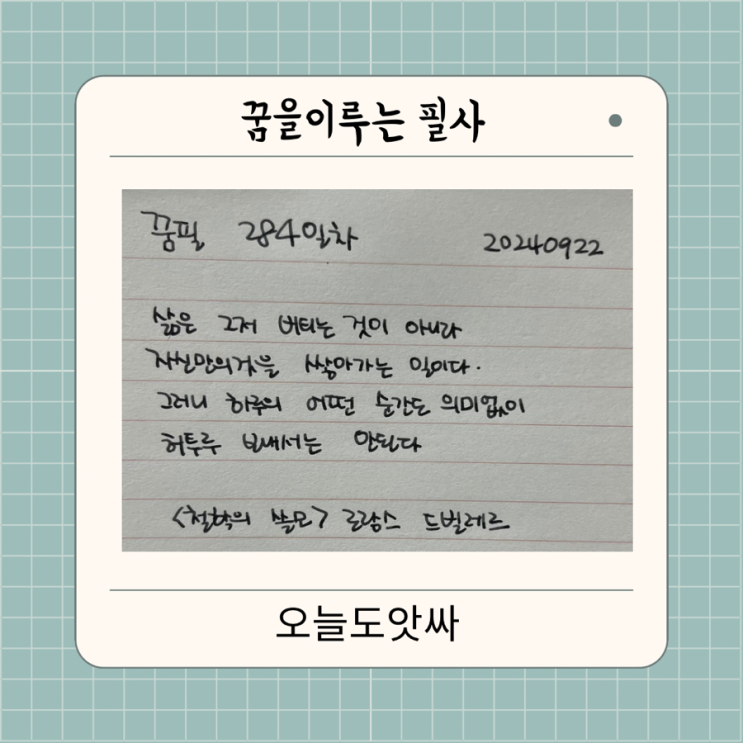 꿈을이루는 필사
꿈필 284일차 20240922
삶은 그저 버티는 것이 아니라
자신만의것을 쌓아가는 일이다.
그러니 하루의 어떤 순간도 의미없이
허투루 보내서는 안된다
<철학의 쓸모> 로랑스 드빌레르
오늘도앗싸